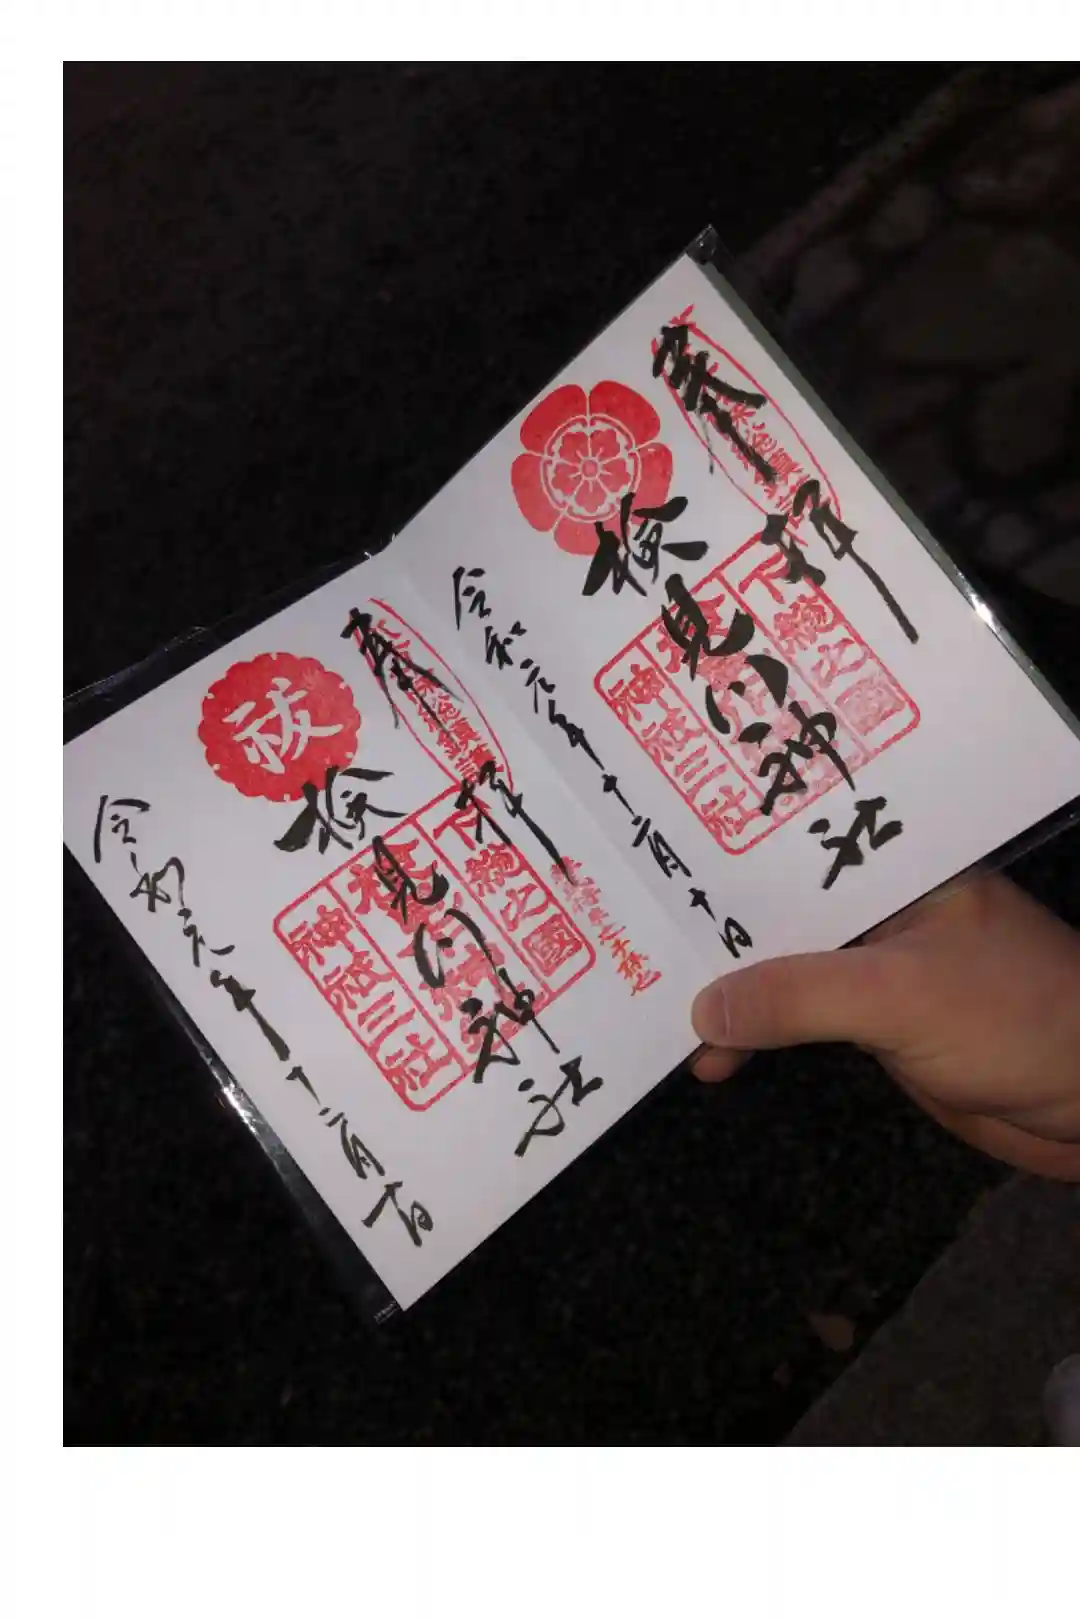 奉拝
検見川神社
下総之國
神祇三社
令和元年十二月十日
奉拝
祓
検見川神社
下総之國
神祇三社
令和元年十二月十日